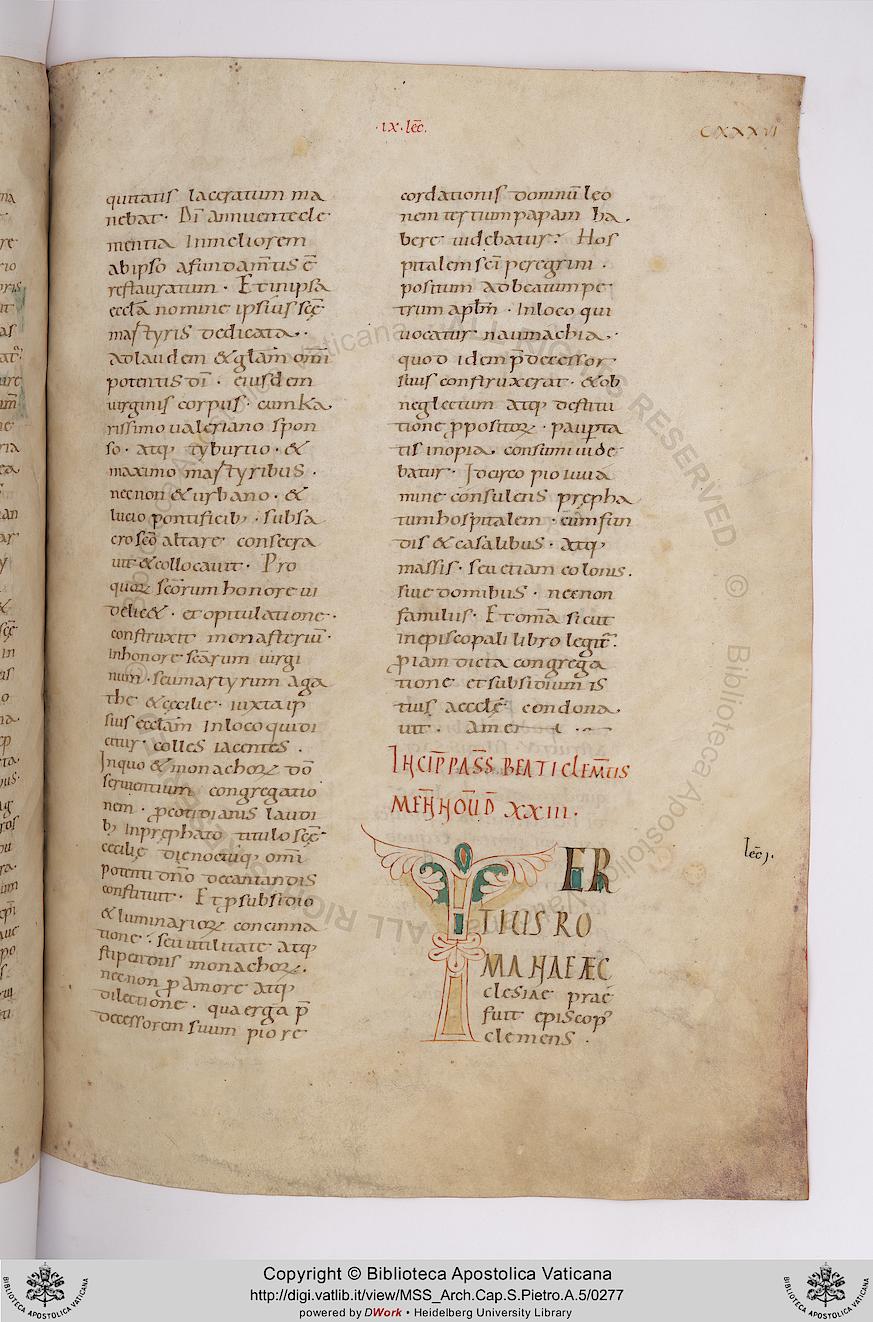 ·ix·lec̄.
CXXXVI
quitatis laceratum ma
nebat· Dī annuente cle
mentia Inmeliorem
abipso afundam̄tis ē
restauratum · Et inipsa
eccl̄a nomine ipsius sc̄ę
martyris dedicata··
Adlaudem &gl̄am om̄i
potentis dī · eiusdem
virginis corpus· cum ka
rissimo valeriano spon
so· atq; tyburtio· &
maximo martyribus ·
necnon & urbano · &
lucio pontificib; · subsa
cro sc̄o altare consecra
uit &collocauit· Pro
quoꝝ sc̄orum honore ui
delic& · et opitulatione·
construxit monasteriū·
Inhonore sc̄arum uirgi
num ·seu martyrum aga
the &cecilie· iuxta ip
sius eccl̄am Inloco qui di
citur· colles iacentes .
Inquo & monachoꝝ dō
seruientium congregatio
nem · ꝓ cotidianis laudi
b; Inpręphato titulo sc̄ę
cecilię dienoctuq; om̄i
potenti dn̄o decantandis
constituit· Et ꝓ subsidio
&luminarioꝝ concinna
tione· seu utilitate atq;
stipendiis monachoꝝ.
necnon ꝓ amore atq;
dilectione· quaerga p̄
decessorem suum pio re
cordationis domnū leo
nem tertium papam ha.
bere uidebatur: Hos
pitalem sc̄i peregrini ·
positum adbeatum pe
trum apl̄m · Inloco qui
uocatur naumachia·
quod idem p̄decessor
suus construxerat· &ob
neglectum atq; destitu
tione p̄positoꝝ· paupta
tis inopia· consumi uide
batur· Idcirco pio uiua
mine consulens prępha
tum hospitalem · cum fun
dis &casalibus· atq;
massis· seu etiam colonis.
siue domibus· necnon
familiis· Et om̄a sicut
inepiscopali libro legit̄.
p̄iam dicta congrega
tione et subsidium is
tius aecclę condona
uit· Amen
INCIP̄ PASS̄ BEATI CLEM̄TIS
MEN̄ NOŪ D̄ XXIII.
lec̄ j.
TER
TIUS RO
MANAE ÆC
clesiae prae
fuit episcop;
clemens ·
Copyright © Biblioteca Apostolica Vaticana
http://digi.vatlib.it/view/MSS_Arch.Cap.S.Pietro.A.5/0277
powered by DWork • Heidelberg University Library